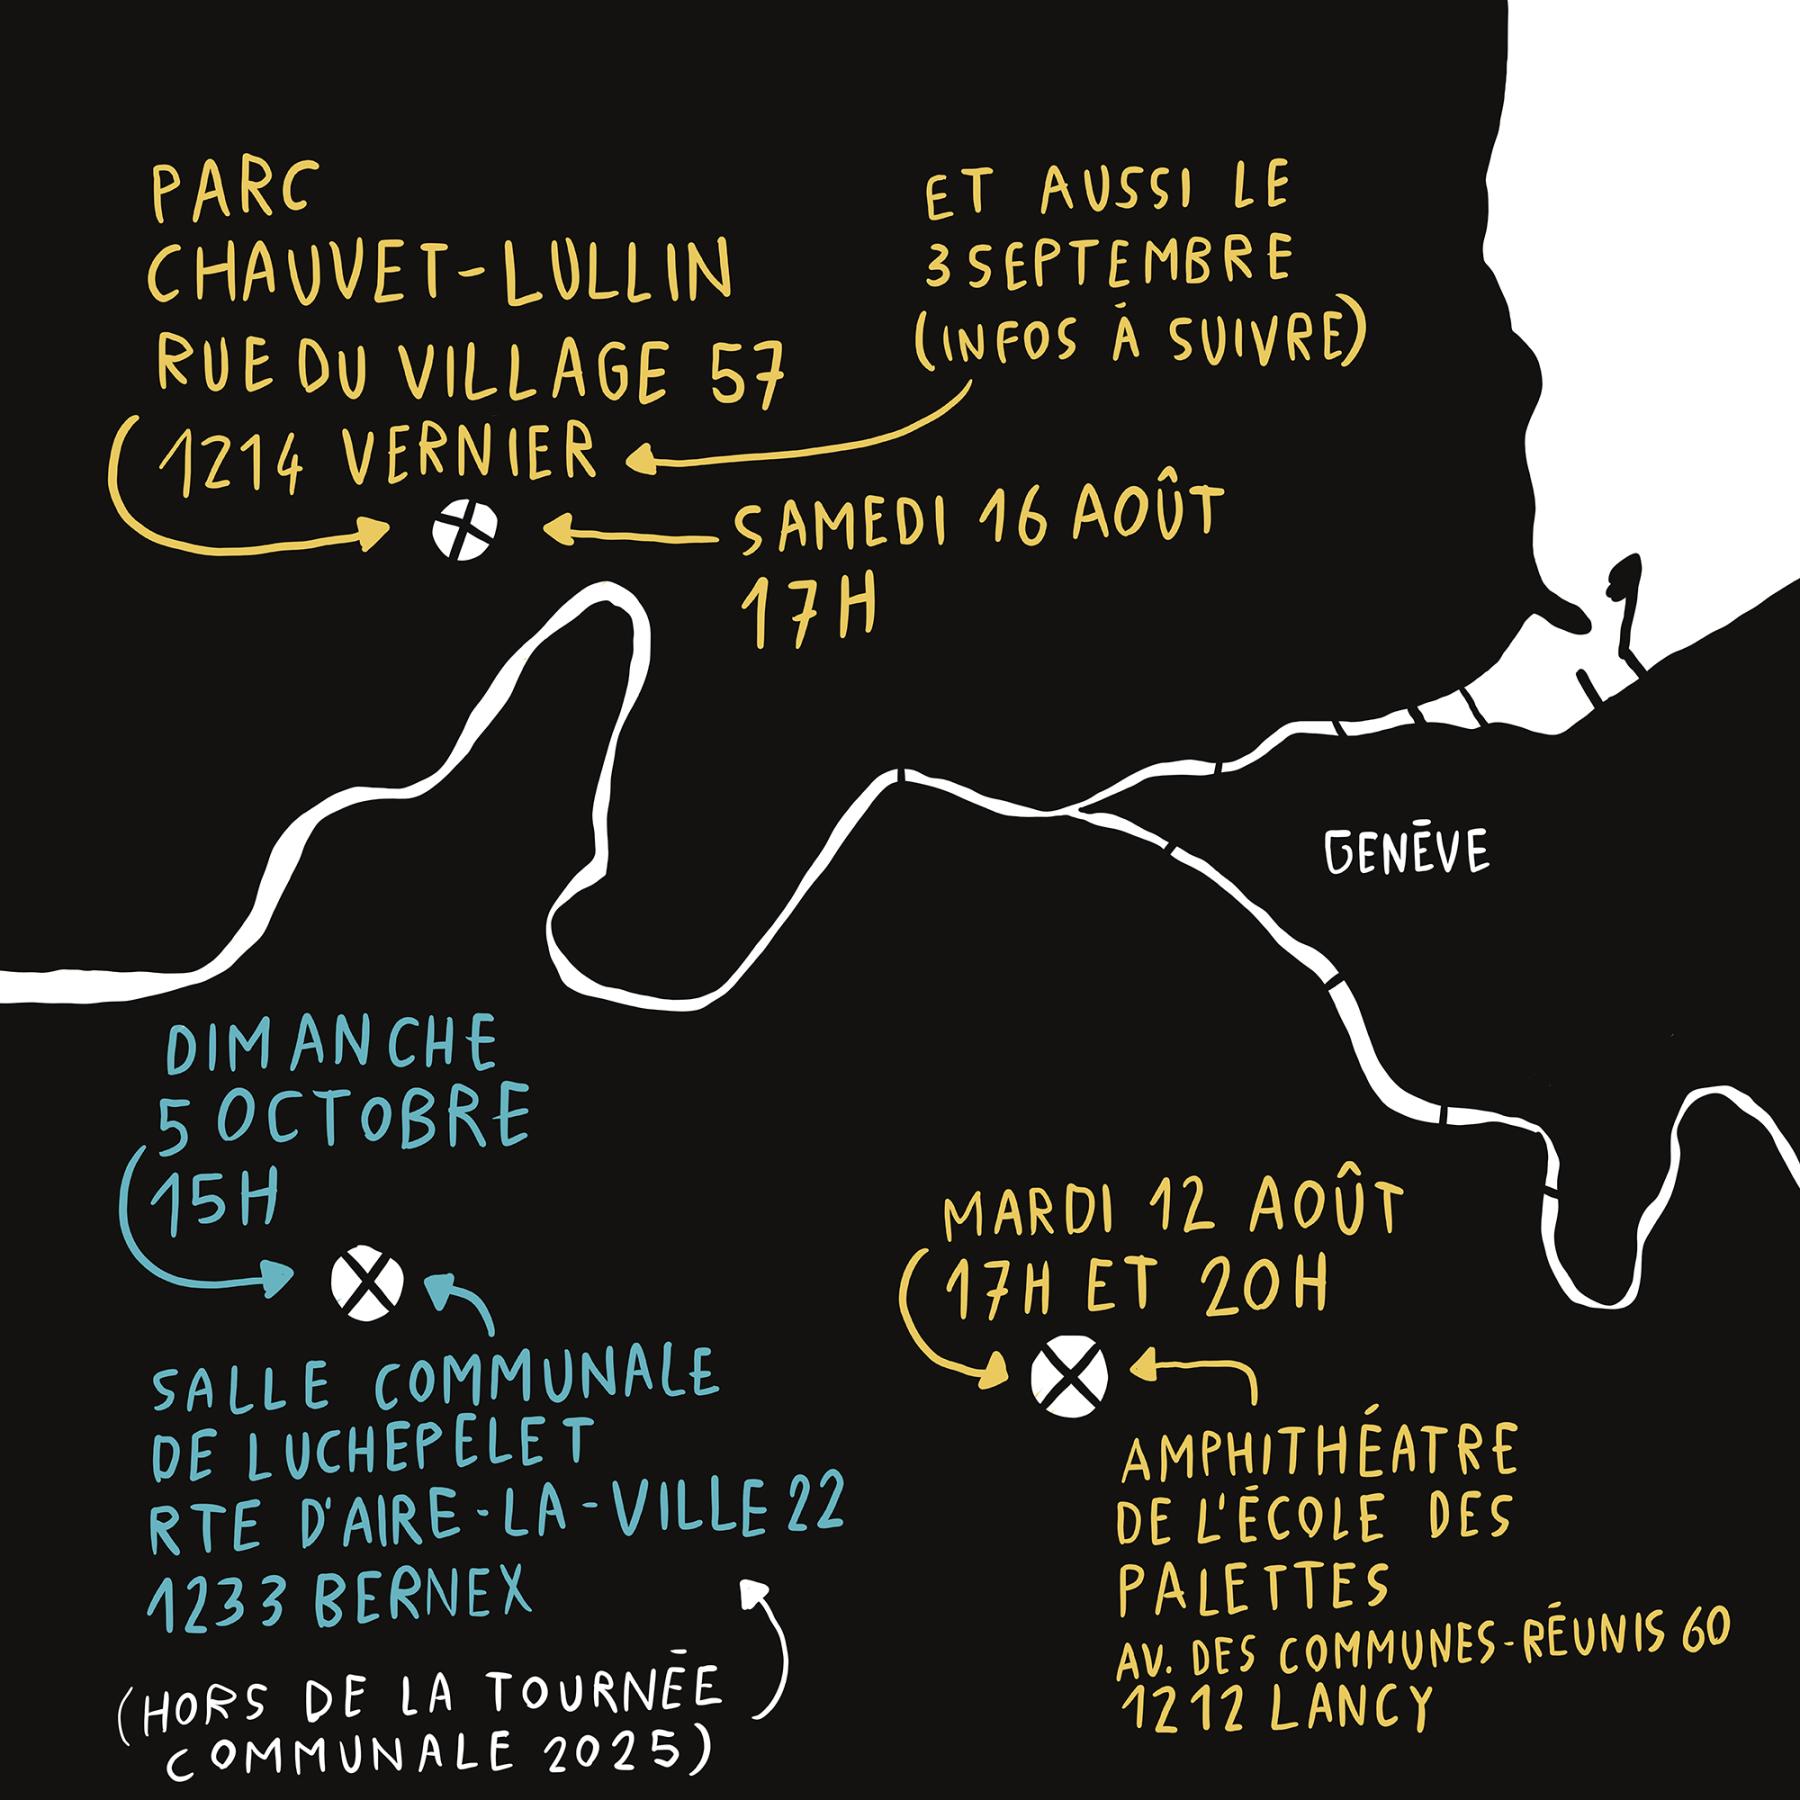 PARC
CHAUVET-LULLIN
RUE DU VILLAGE 57
1214 VERNIER
ET AUSSI LE
3 SEPTEMBRE
(INFOS À SUIVRE)
SAMEDI 16 AOÛT
17H
GENÈVE
DIMANCHE
5 OCTOBRE
15H
SALLE COMMUNALE
DE LUCHEPELET
RTE D'AIRE-LA-VILLE 22
1233 BERNEX
(HORS DE LA TOURNÉE
COMMUNALE 2025)
MARDI 12 AOÛT
17H ET 20H
AMPHITHÉATRE
DE L'ÉCOLE DES
PALETTES
AV. DES COMMUNES-RÉUNIS 60
1212 LANCY